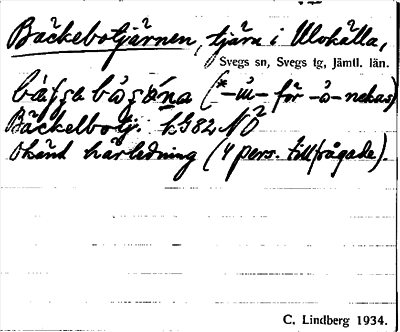 Bäckebotjärnen, tjärn i Ulvkälla,
Svegs sn, Svegs tg, Jämtl. län.
(*-ω- för -å- nekas)
Bäckelbotj. kG82 NO
Okänd härledning (4 pers. tillfrågade).
C. Lindberg 1934.